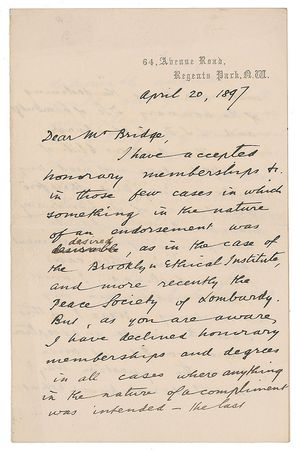 64, Avenue Road,
Regents Park, N.W.
April 20, 1897
Dear Mr Bridge,
I have accepted
honorary memberships &c.
in those few cases in which
something in the nature
of an endorsement was
desired
desirable, as in the case of
the Brooklyn Ethical Institute,
and more recently the
Peace Society of Lombardy.
But, as you are aware,
I have declined honorary
memberships and degrees
in all cases where anything
in the nature of a compliment
was intended – the last